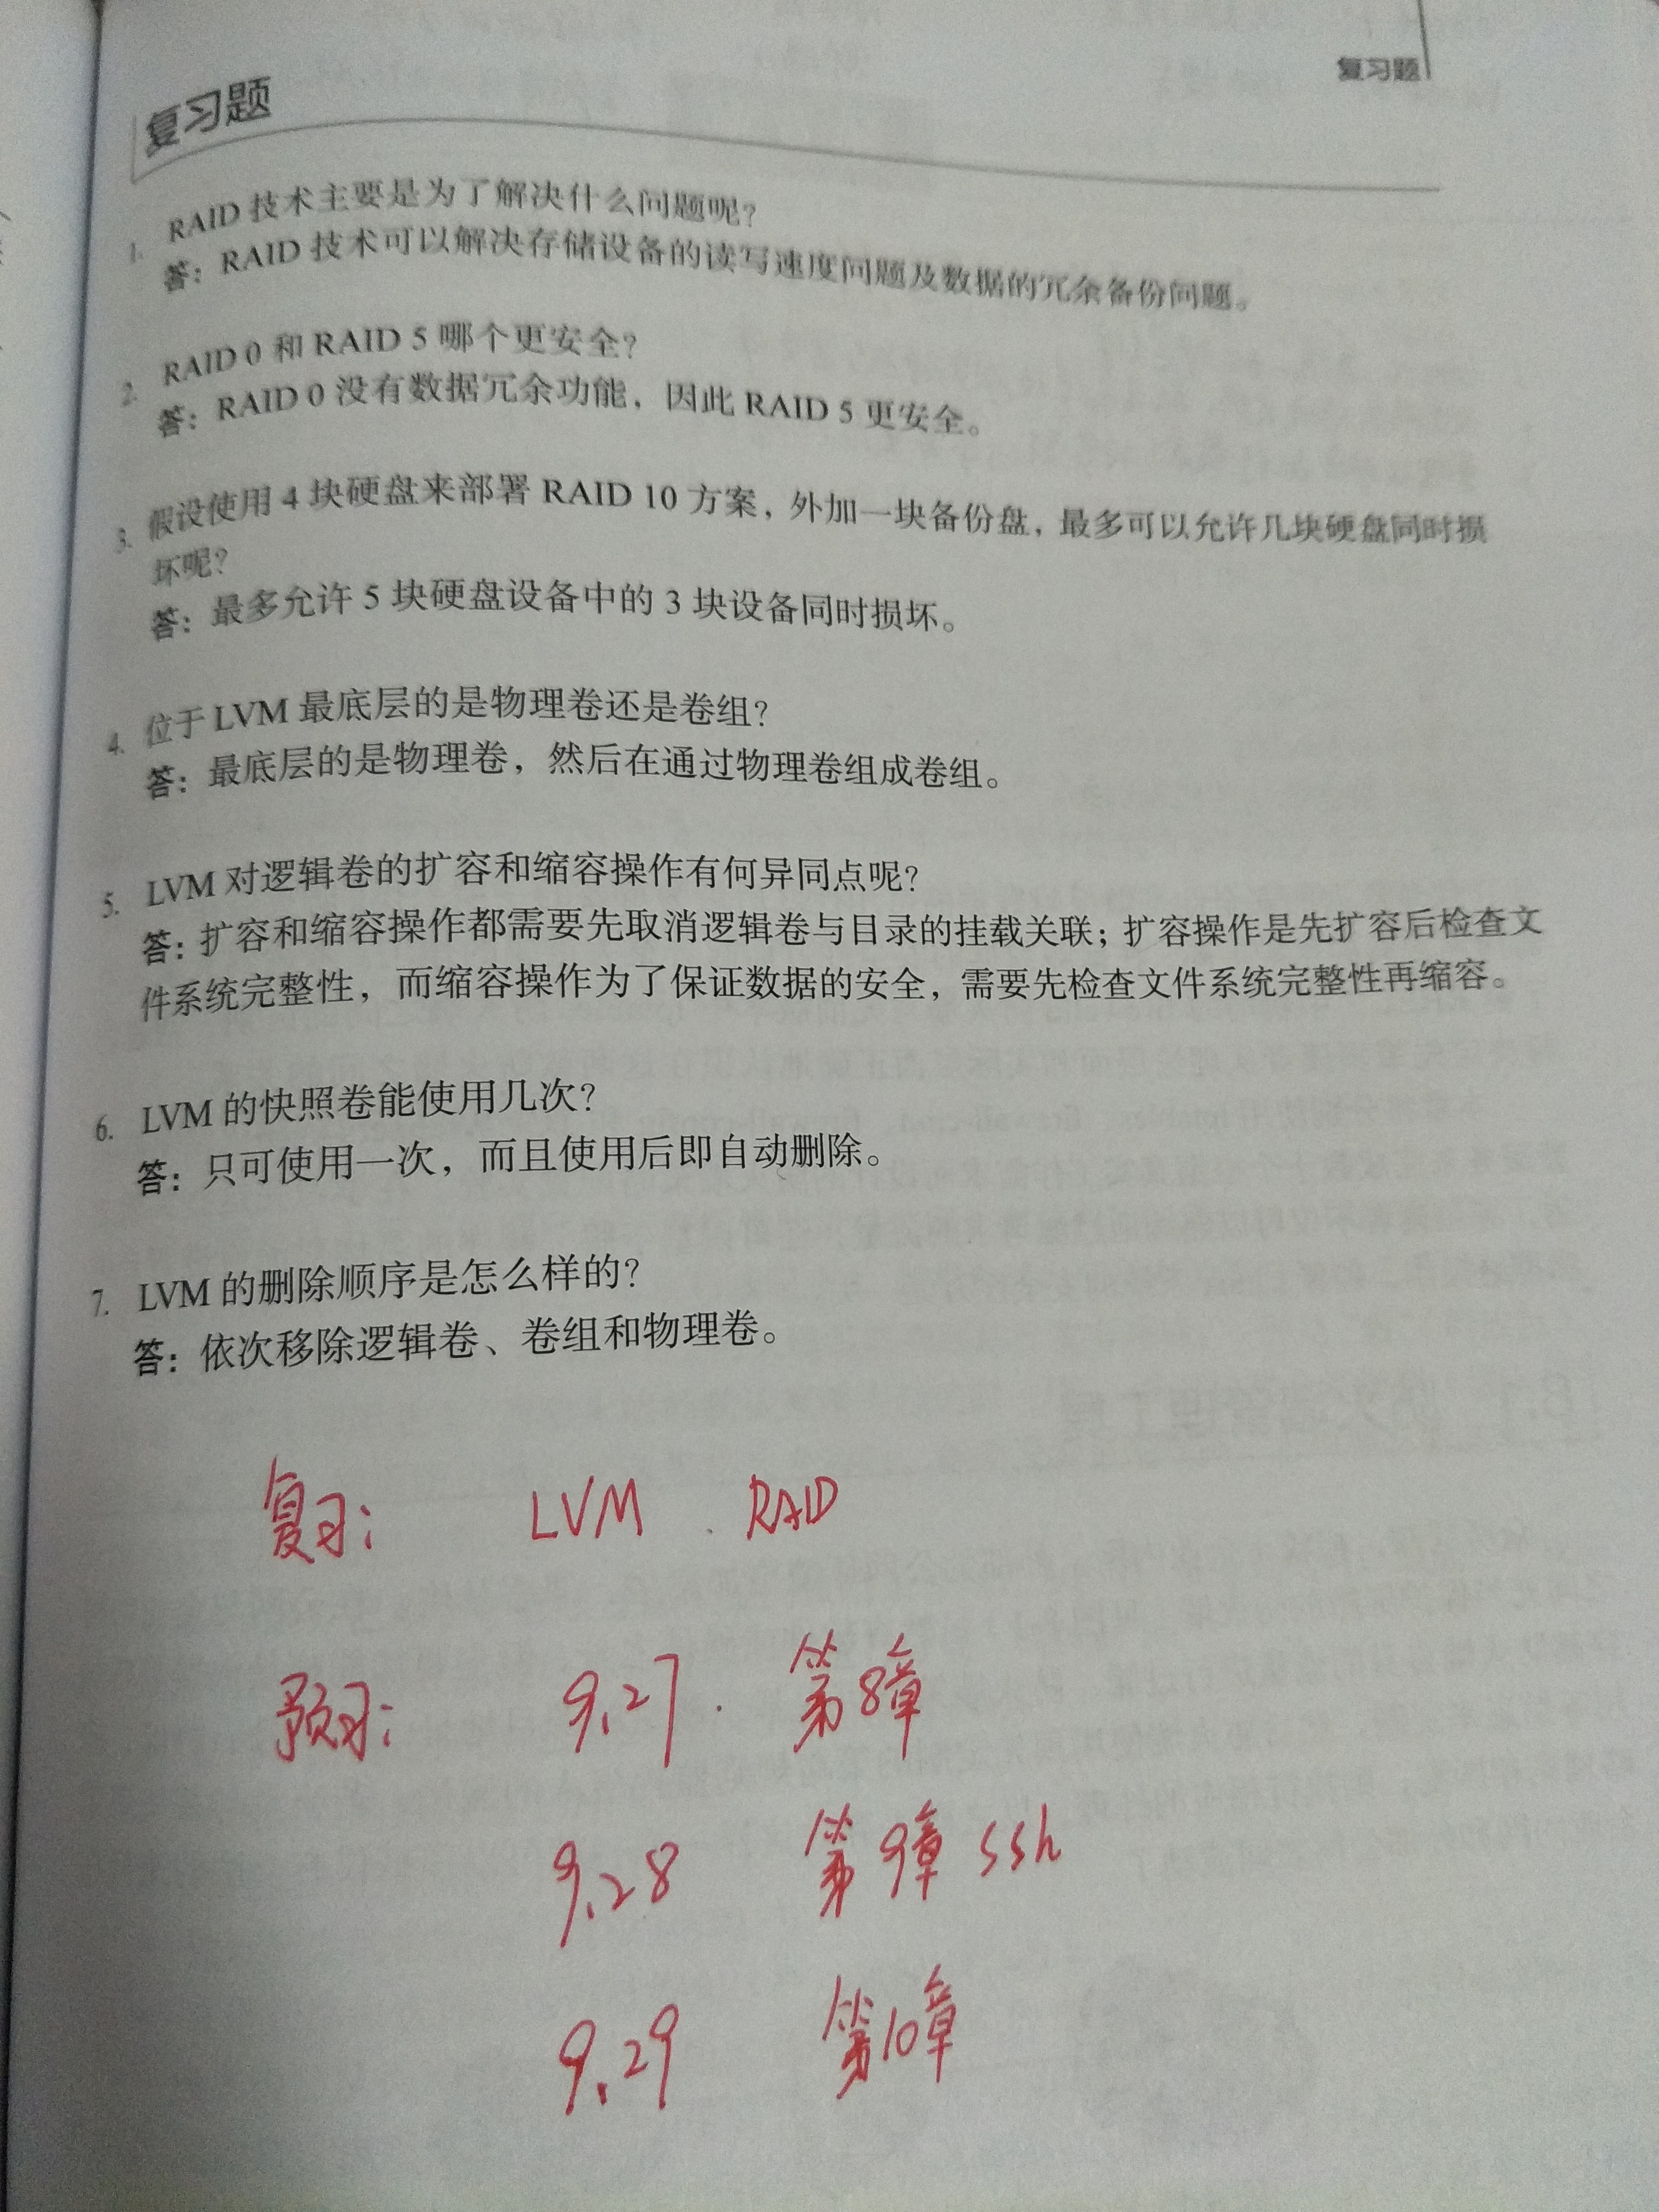 复习题
复习题
1. RAID 技术主要是为了解决什么问题呢？
答：RAID 技术可以解决存储设备的读写速度问题及数据的冗余备份问题。
2. RAID 0 和 RAID 5 哪个更安全？
答：RAID 0 没有数据冗余功能，因此 RAID 5 更安全。
3. 假设使用 4 块硬盘来部署 RAID 10 方案，外加一块备份盘，最多可以允许几块硬盘同时损
坏呢？
答：最多允许 5 块硬盘设备中的 3 块设备同时损坏。
4. 位于 LVM 最底层的是物理卷还是卷组？
答：最底层的是物理卷，然后在通过物理卷组成卷组。
5. LVM 对逻辑卷的扩容和缩容操作有何异同点呢？
答：扩容和缩容操作都需要先取消逻辑卷与目录的挂载关联；扩容操作是先扩容后检查文
件系统完整性，而缩容操作为了保证数据的安全，需要先检查文件系统完整性再缩容。
6. LVM 的快照卷能使用几次？
答：只可使用一次，而且使用后即自动删除。
7. LVM 的删除顺序是怎么样的？
答：依次移除逻辑卷、卷组和物理卷。
复习： LVM . RAID
预习： 9.27 . 第8章
9.28 第9章 ssh
9.29 第10章